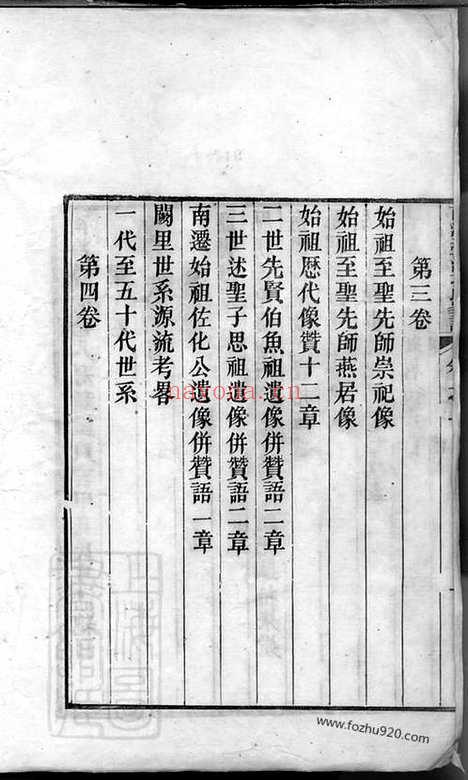 第三卷
始祖至聖先師崇祀像
始祖至聖先師燕居像
始祖歷代像贊十二章
二世先賢伯魚祖遺像併贊語二章
三世述聖子思祖遺像併贊語二章
南遷始祖佐化公遺像併贊語一章
闕里世系源流考畧
一代至五十代世系
第四卷
nayona.cn
www.fozhu920.com